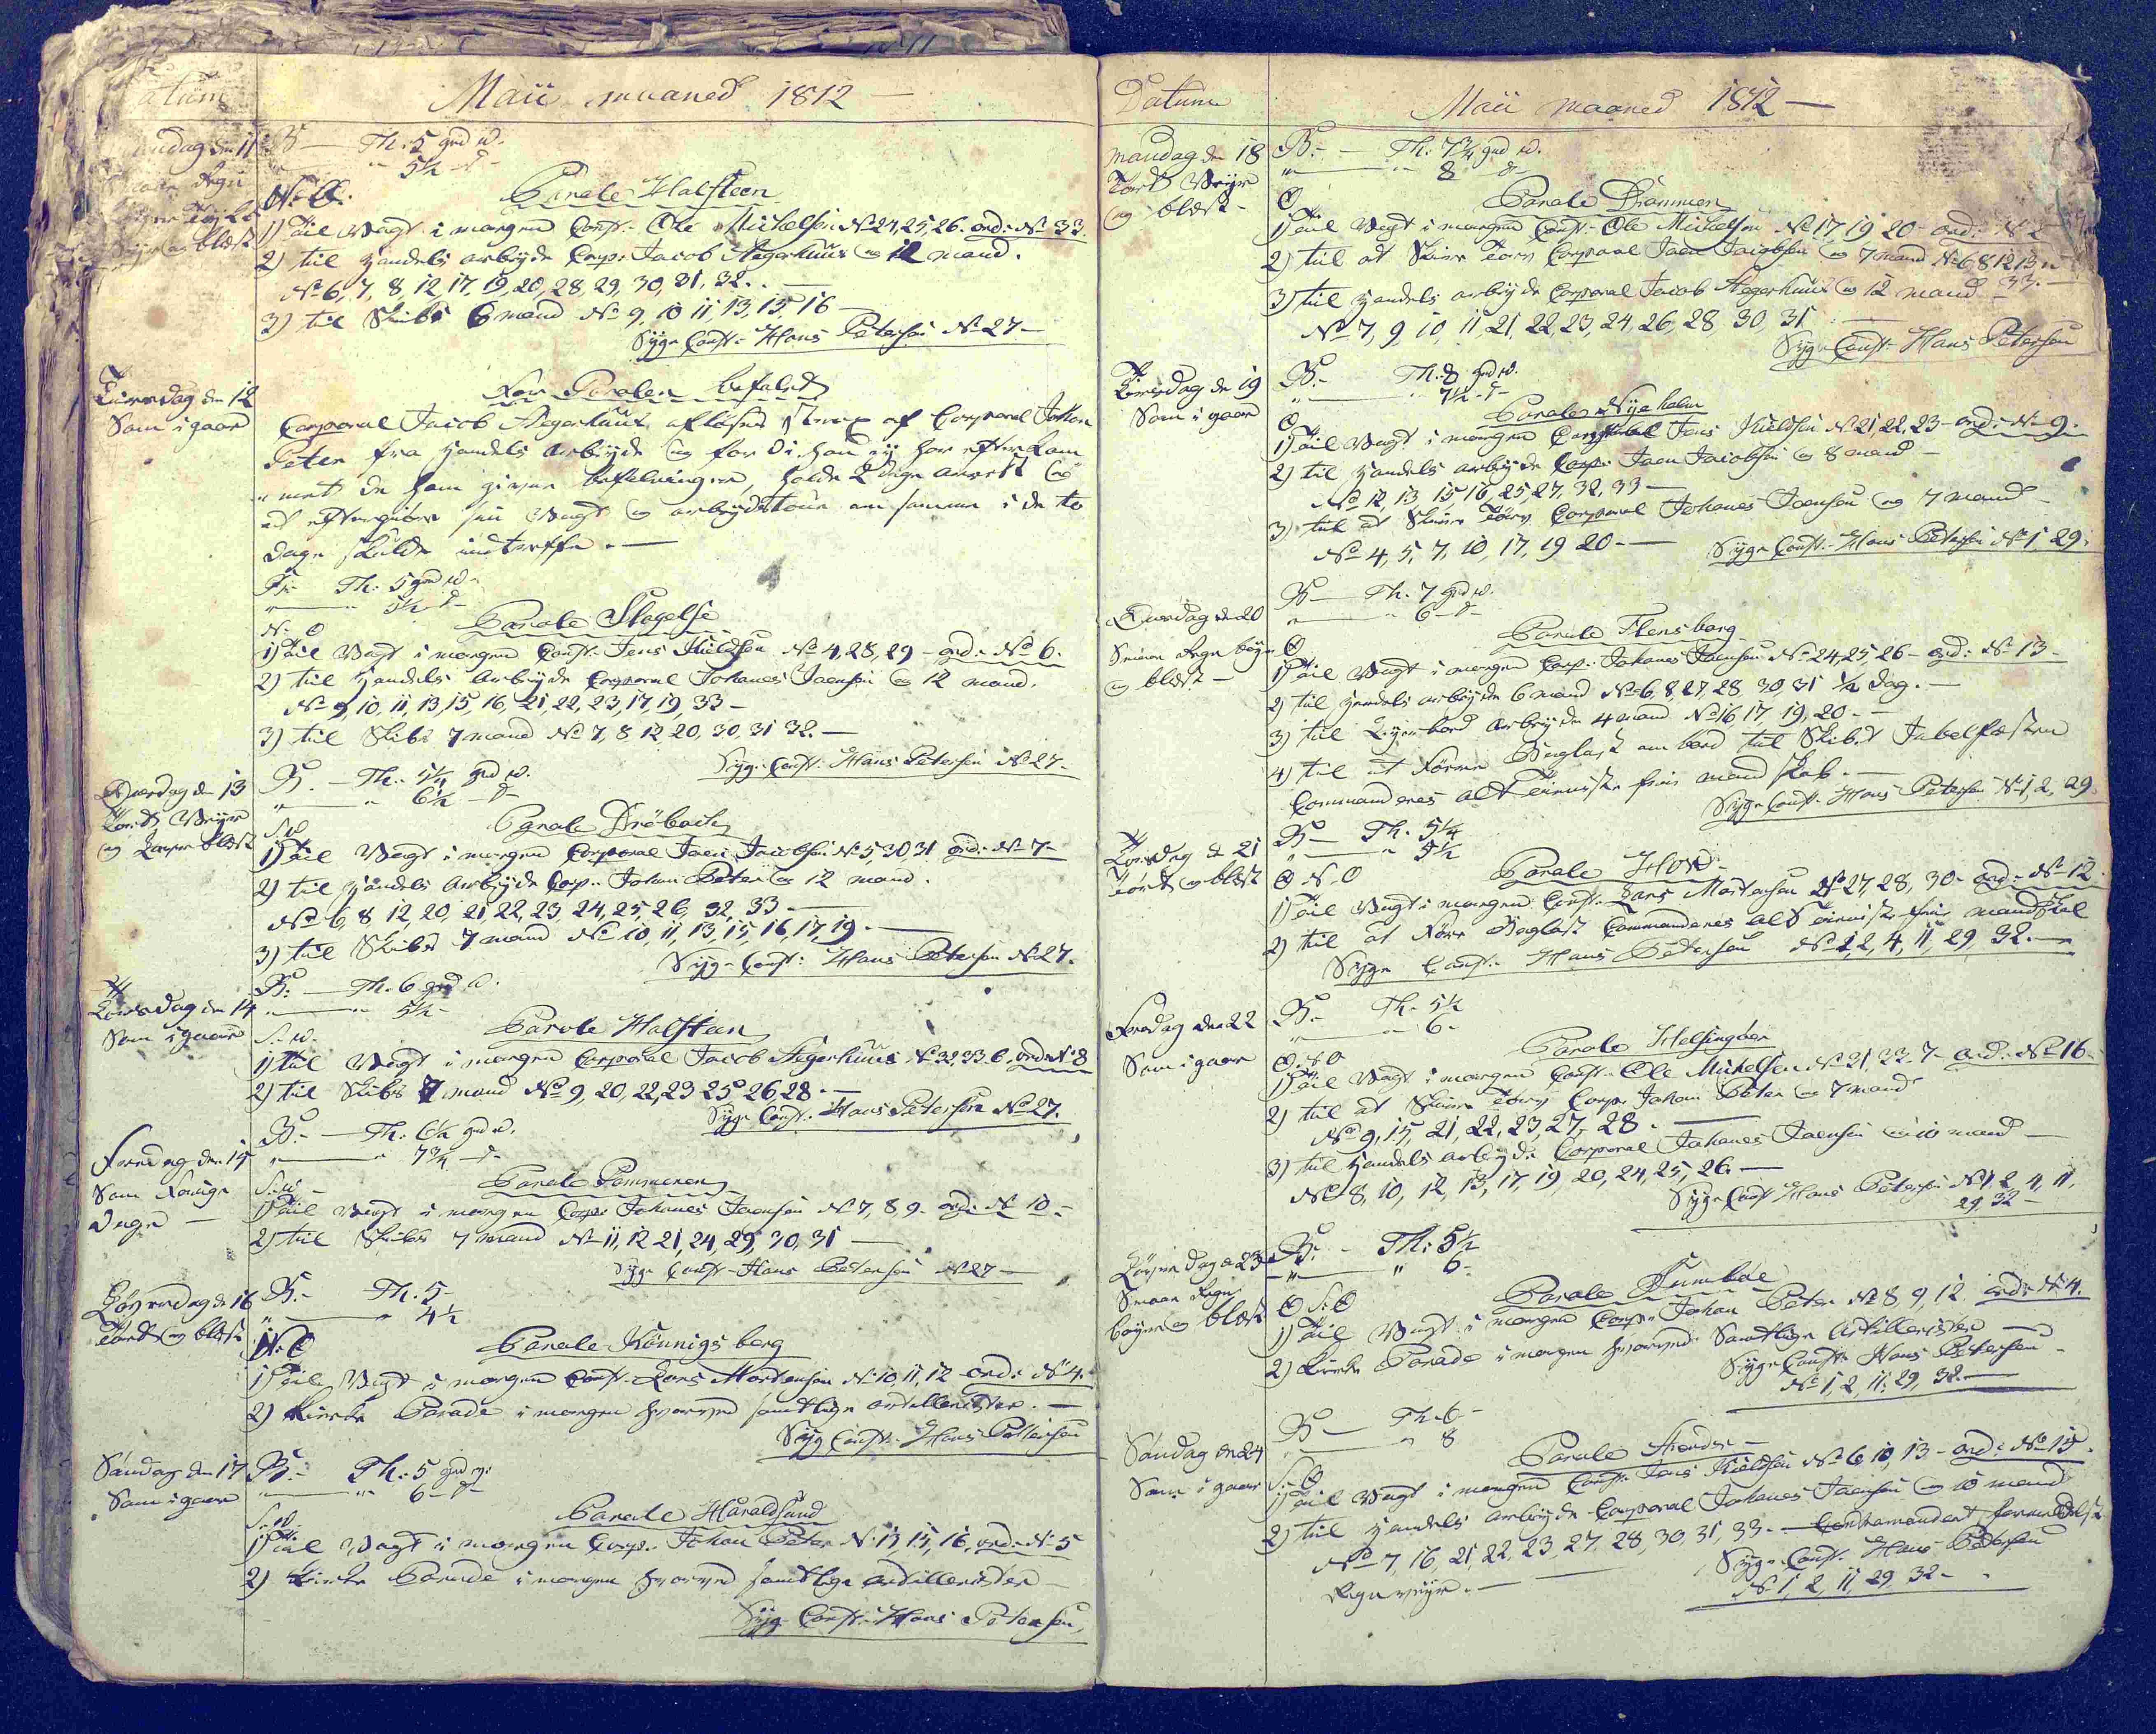 Datum
Maii maaned 1812 —
Mandag den 11
Smaae Regn
Bÿger Tÿk
og blæst
B — Th: 5 grd w.
" — " 5½ — d° —
N: O:
Parole Halsteen
1) Til Vagt i morgen Const: Ole Mickelsen N° 24, 25, 26. ord: N° 33.
2) til Handels arbeÿde Corp: Jacob Aegerhuus og 12 mand.
N° 6, 7, 8, 12, 17, 19, 20, 28, 29, 30, 31, 32. —
3) til Skibs 6 mand N° 9, 10, 11, 13, 15, 16 —
Sÿge Const: Hans Petersen N° 27 —
Tiirsdag den 12
Som i gaar
Før Parolen befaled
Corporal Jacob Aegerhuus afløses strax af Corporal Johan
Peter fra Handels arbeÿde og for di han eÿ har efterkom
" met de ham givne befalninger, holde 2 dage arrest og
at eftergiøre sin Vagt og arbeÿds tour om samme i de to
dage skulde indtreffe. —
B: Th: 5 grd w —
" — " 5½ d° —
N: O
Parole Slagelse
1) Til Vagt i morgen Const: Jens Kieldsen N° 4, 28, 29 — ord: N° 6.
2) til Handels Arbeÿde Corporal Johanes Joensen og 12 mand.
N° 9, 10, 11, 13, 15, 16, 21, 22, 23, 17, 19, 33 —
3) til Skibs 7 mand N° 7, 8 12 20, 30, 31 32. —
Sÿge Const: Hans Petersen N° 27 —
Onsdag den 13
Tørt Veÿr
og blæst
B. — Th: 5¼ grd w.
" — " 6½ — d° —
S: W
Parole Drøbach
1) Til Vagt i morgen Corporal Joen Jacobsen N° 5, 30, 31 ord: N° 7 —
2) til Handels Arbeÿde Corp: Johan Peter og 12 mand.
N° 6, 8 12, 20, 21, 22, 23, 24, 25, 26, 32, 33 —
3) til Skibs 7 mand N° 10, 11, 13, 15, 16, 17, 19. —
Sÿge Const: Hans Petersen N° 27.
Torsdag den 14
Som i gaar
B: — Th. 6 grd w.
" — " 5½ —
S: W.
Parole Halsten
1) til Vagt i morgen Corporal Jacob Aegerhuus N° 32, 33. 6, ord N° 8
2) til Skibs 7 mand N° 9, 20, 22, 23 25 26, 28. —
Sÿge Const: Hans Petersen N° 27.
Fredag den 15
Som forrige
Dage —
B: — Th: 6½ grd w.
" — " 7¾ — d° —
S: W —
Parole Pommeren
1) Til Vagt i morgen Corp: Johanes Joensen N° 7, 8, 9 — ord: N° 10 —
2) til Skibs 7 mand N° 11, 12 21, 24, 29, 30, 31 —
Sÿge Const — Hans Petersen N° 27 —
Løverdag den 16
Tørt og blæst
B. — Th. 5 —
" — " 4½
N: O
Parole Kønnigsberg
1) Til Vagt i morgen Const: Lars Mortensen N° 10, 11, 12 ord: N° 4.
2) Kirke Parade i morgen hvorved samtlige artillerister. —
Sÿg Const: Hans Pettersen
Søndag den 17
Som i gaar
B: — Th: 5 grd w:
" — " 6 — d° —
S: W —
Parole Haraldsund
1) Til Vagt i morgen Corp: Johan Peter N° 13 15, 16, ord: N° 5
2) Kirke Parade i morgen hvorved samtlige artillerister —
Sÿge Const: Hans Petersen,
Datum
Maii maaned 1812 —
Mandag den 18
Tørt Veÿr
og blæst —
B: — Th. 7¾ grd w.
" — " 8 d° —
O
Parole Drammen
1) til Vagt i morgen Const: Ole Mickelsen N° 17, 19 20 — ord: N° 2
2) til at Skiær Tørv Corporal Joen Jacobsen og 7 mand N° 6, 8 12 13
3) til Handels arbeÿde Corporal Jacob Aegerhuus og 12 mand — 33. —
N° 7, 9, 10, 11, 21, 22, 23, 24, 26, 28, 30, 31 —
Sÿge Const: Hans Petersen
Tiirsdag den 19
Som i gaar
B: — Th: 8 grd w.
" — " 7½ — d° —
O
Parole Nÿeholm
1) Til Vagt i morgen Jens Kieldsen N° 21, 22, 23 — ord: N° 9.
2) til Handels arbeÿde Corp: Joen Jacobsen og 8 mand —
N° 12, 13 15 16, 25, 27, 32, 33 —
3) til at Skiær Tørv Corporal Johanes Joensen og 7 mand —
N° 4, 5, 7, 10, 17, 19 20 — —
Sÿge Const: Hans Petersen N° 1, 29.
Onsdag den 20
Smaae Regn Bÿger
og blæst —
B — Th. 7 grd w.
" — " 6 — d° —
O
Parole Flensborg
1) Til Vagt i morgen Corp: Johanes Joensen N° 24, 25, 26 — ord: N° 13 —
2) til Handels arbeÿde 6 mand N° 6, 8, 27, 28, 30, 31 ½ dag. —
3) til arbeÿde 4 mand N° 16 17, 19, 20 — —
4) til at Føre Baglast om bord til Skibet Jubelfæsten
Commanderes alt tieniste frie mandskab. —
Sÿge Const: Hans Petersen N° 1, 2, 29.
Torsdag d 21
Tørt og blæst
B — Th. 5¼
" — " 5½
O N. O
Parole Hove —
1) Til Vagt i morgen Const: Lars Mortensen N° 27, 28, 30 — ord: N° 12.
2) til at Føre Baglast Commanderes alt tieniste frie mandskab
Sÿge Const: Hans Petersen N° 1, 2, 4, 11, 29, 32. —
Fredag den 22
Som i gaar
B: — Th: 5½
" — " 6 —
Parole Helsingøer
1) Til Vagt i morgen Const: Ole Mickelsen N° 31, 33. 7 — ord: N° 16 —
2) til at Skiær Tørv Corp: Johan Peter og 7 mand
N° 9, 15, 21, 22, 23, 27, 28. —
3) til Handels arbeÿde Corporal Johanes Joensen og 10 mand —
N° 8, 10, 12, 13, 17, 19 20, 24, 25, 26. —
Sÿge Const: Hans Petersen N° 1, 2, 4, 11,
29, 32 —
Løverdag d 23
Smaae Regn
bÿger og blæst
B: — Th: 5½
" — " 6 —
O S: O
Parole
1) Til Vagt i morgen Corp: Johan Peter N° 8, 9, 12 ord: N° 4.
2) Kirke Parade i morgen hvorved Samtlige Artillerister —
Sÿge Const: Hans Petersen —
N° 1, 2, 11, 29, 32. —
Søndag den 24
Som i gaar
B — Th. 6 —
" — " 8
S: O
Parole —
1) Til Vagt i morgen Const: Jens Kieldsen N° 6, 10, 13 — ord: N° 15.
2) til Handels arbeÿde Corporal Johanes Joensen og 10 mand
N° 7, 16, 21, 22, 23, 27, 28, 30, 31, 33. — Contramandert formedelst
Regnveÿr. —
Sÿge Const: Hans Petersen
N° 1, 2, 11, 29, 32 —